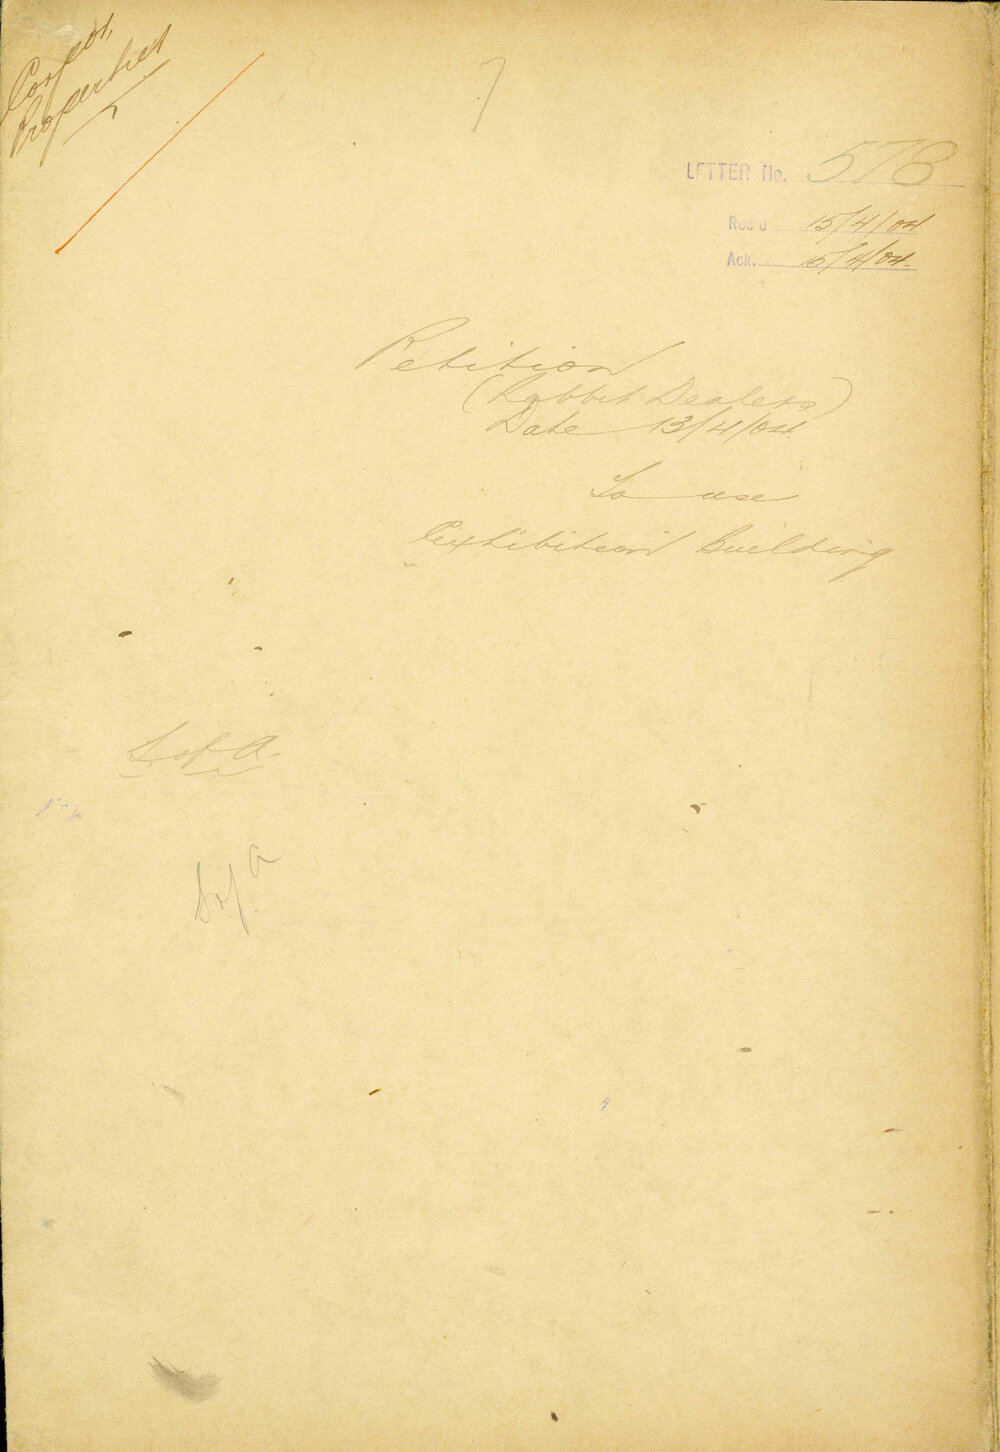 Corpor.
Properties
LETTER No. 578
Rec'd 15/4/04
Ack. 15/4/04
Petition
(Rabbit Dealers)
Date 13/4/04
To use
Exhibition Building